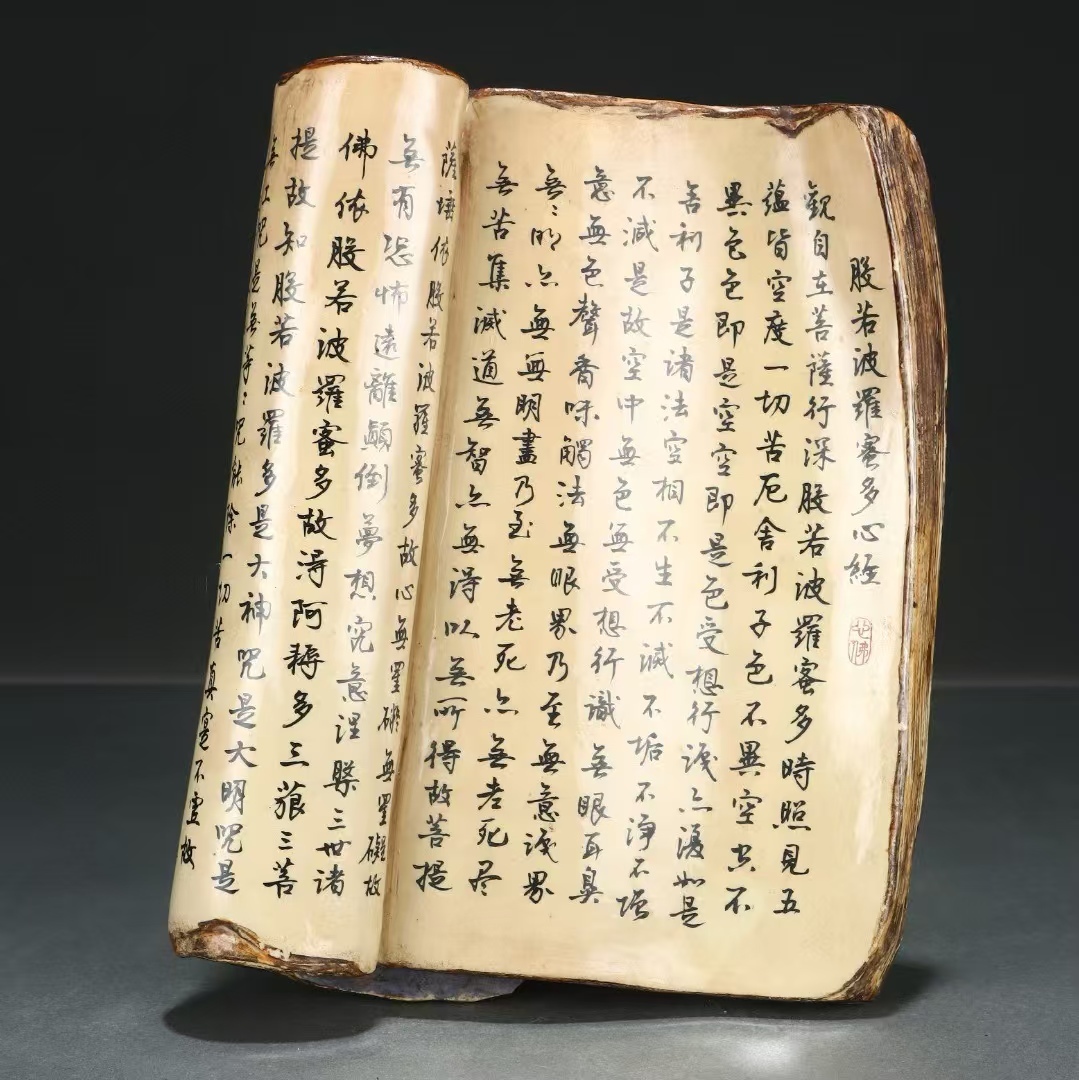 般若波羅蜜多心經
觀自在菩薩行深般若波羅蜜多時照見五
蘊皆空度一切苦厄舍利子色不異空空不
異色色即是空空即是色受想行識亦復如是
舍利子是諸法空相不生不滅不垢不淨不增
不減是故空中無色無受想行識無眼耳鼻
意無色聲香味觸法無眼界乃至無意識界
無〻明亦無無明盡乃至無老死亦無老死尽
無苦集滅道無智亦無得以無所得故菩提
薩埵依般若波羅蜜多故心無罣礙無罣礙故
無有恐怖遠離顛倒夢想究意涅槃三世諸
佛依般若波羅蜜多故得阿耨多三藐三菩
提故知般若波羅多是大神咒是大明咒是
無上咒是無等〻咒能除一切苦真實不虛故